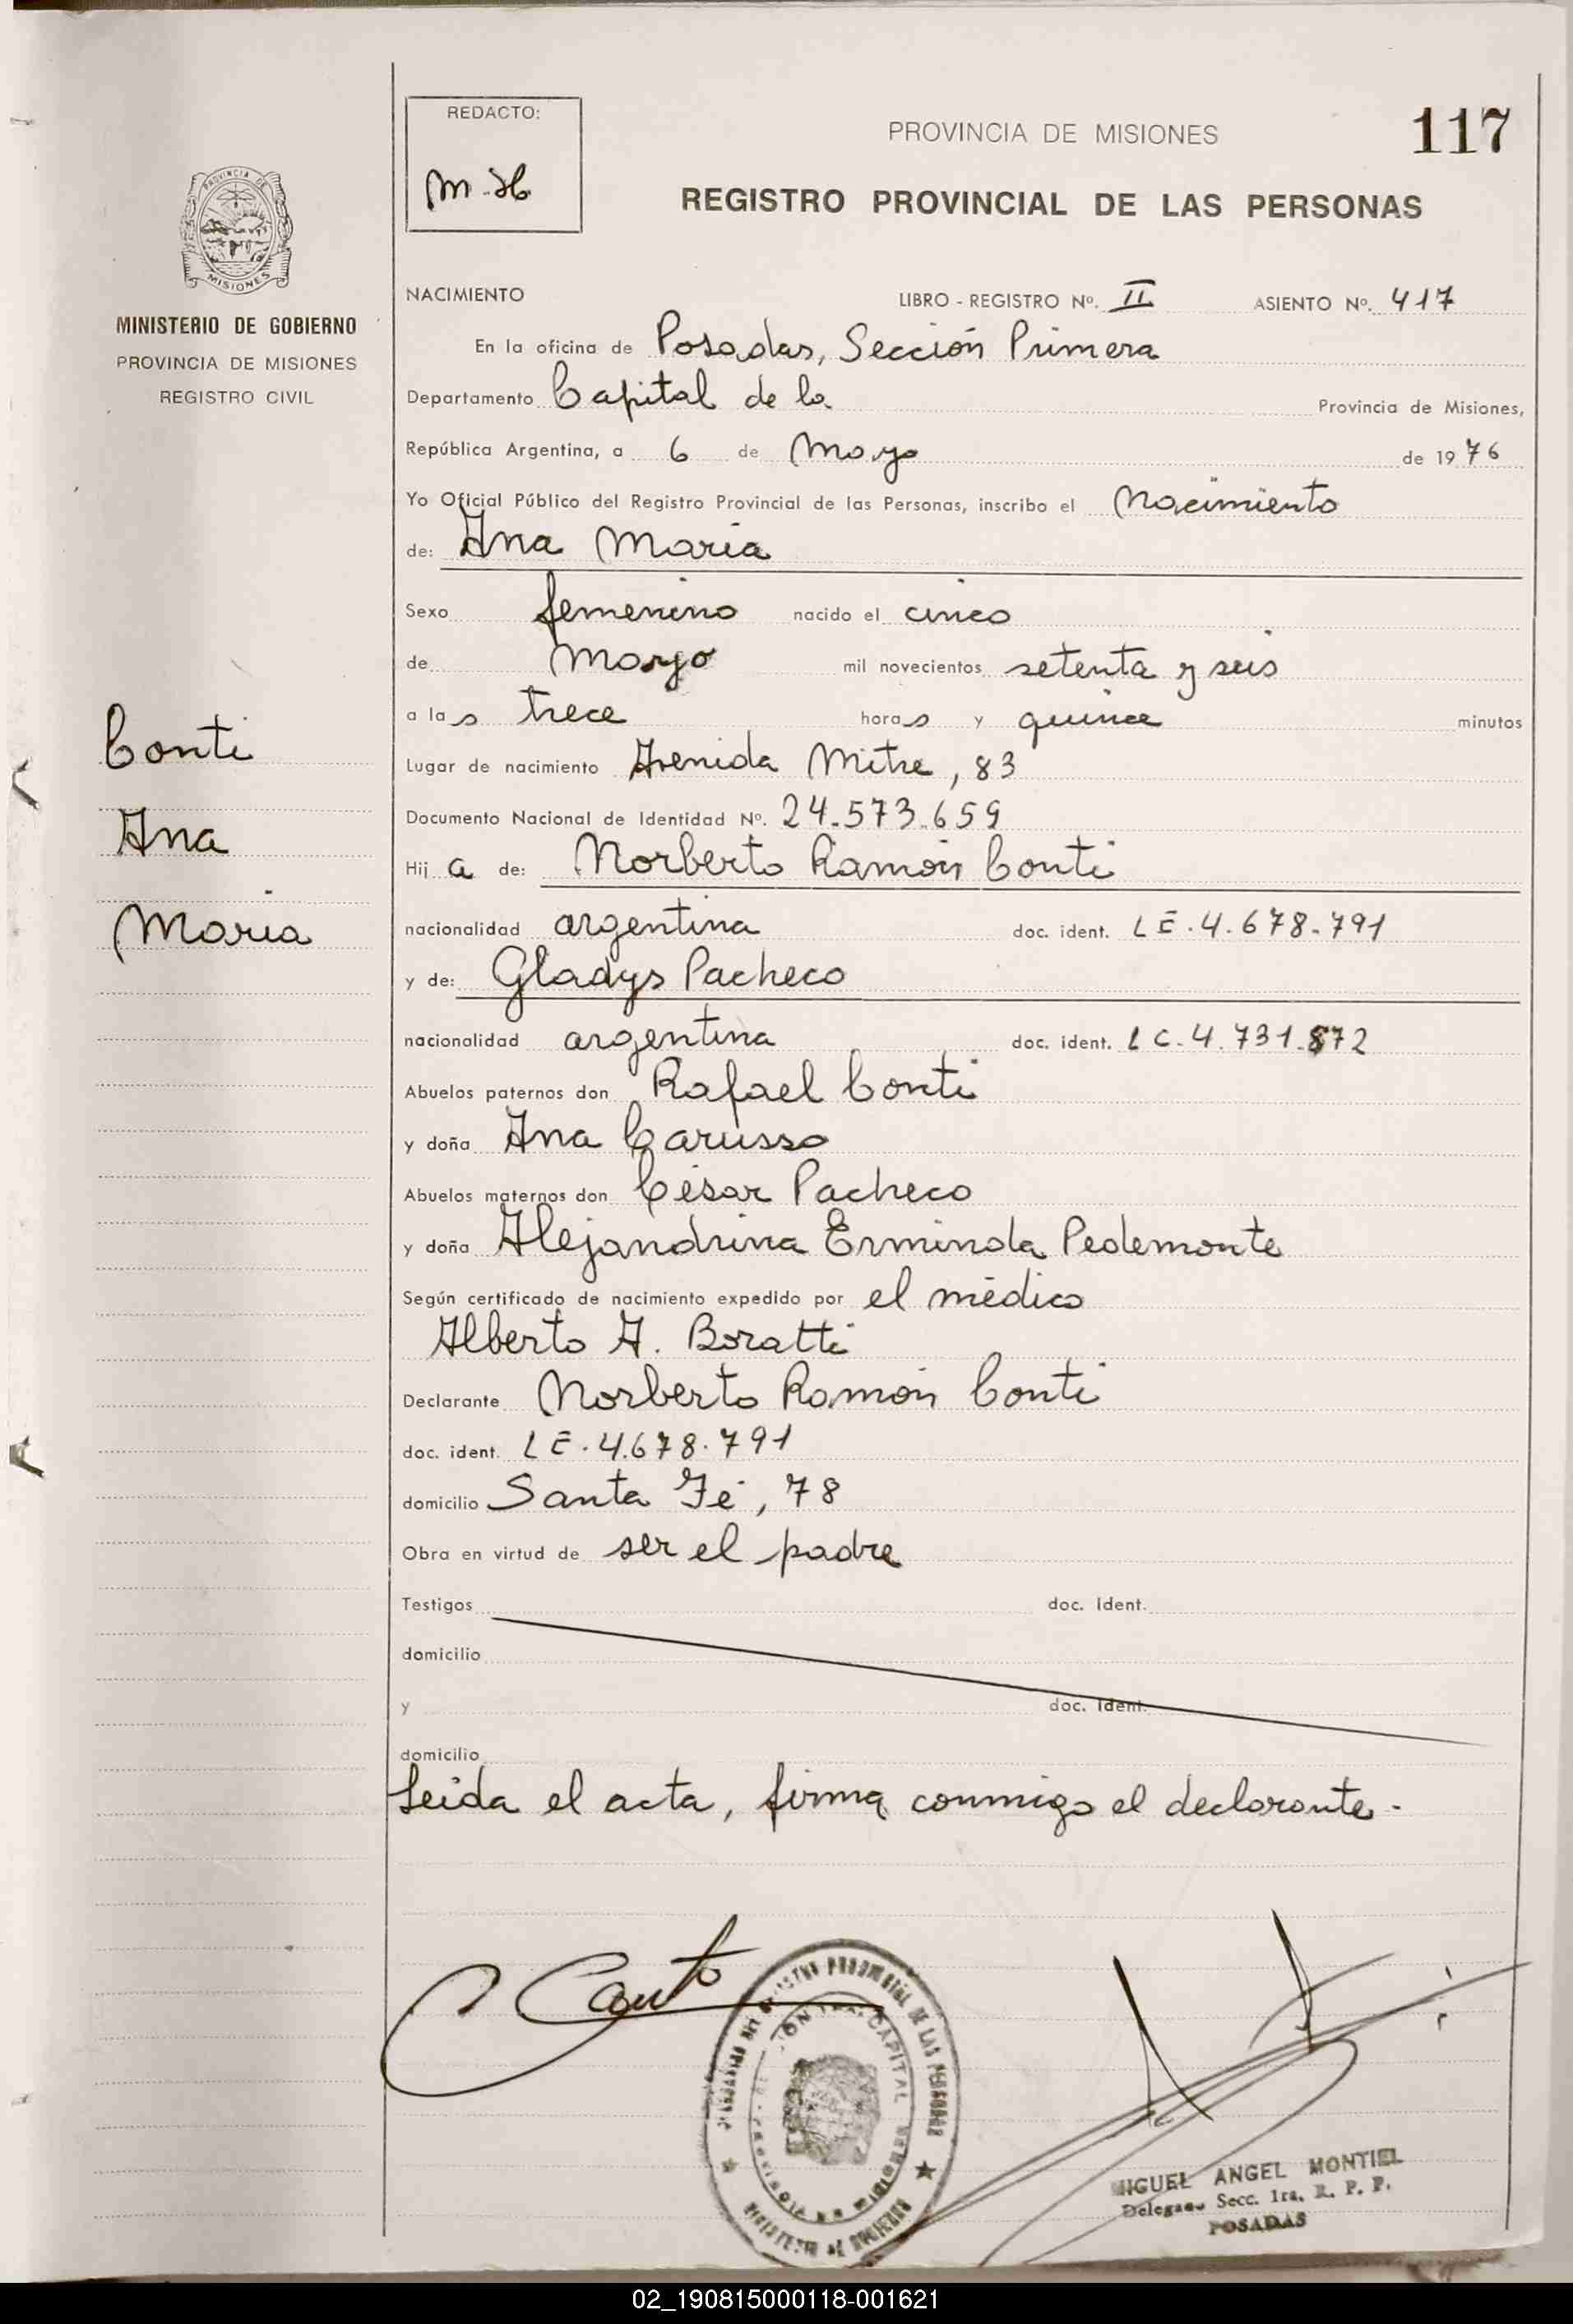 REDACTO:
PROVINCIA DE MISIONES
117
REGISTRO PROVINCIAL DE LAS PERSONAS
PROVINCIA DE
MISIONES
MINISTERIO DE GOBIERNO
PROVINCIA DE MISIONES
REGISTRO CIVIL
Conti
Ana
Maria
NACIMIENTO LIBRO - REGISTRO Nº. II ASIENTO Nº. 417
En la oficina de Posadas, Sección Primera
Departamento Capital de la Provincia de Misiones,
República Argentina, a 6 de Mayo de 1976
Yo Oficial Público del Registro Provincial de las Personas, inscribo el Nacimiento
de: Ana Maria
Sexo femenino nacido el cinco
de Mayo mil novecientos setenta y seis
a las trece horas y quince minutos
Lugar de nacimiento Avenida Mitre, 83
Documento Nacional de Identidad Nº. 24.573.659
Hija de: Norberto Ramón Conti
nacionalidad argentina doc. ident. LE.4.678.791
y de: Gladys Pacheco
nacionalidad argentina doc. ident. LC.4.731.872
Abuelos paternos don Rafael Conti
y doña Ana Carusso
Abuelos maternos don César Pacheco
y doña Alejandrina Erminda Pedemonte
Según certificado de nacimiento expedido por el médico
Alberto A. Boratti
Declarante Norberto Ramón Conti
doc. ident. LE.4.678.791
domicilio Santa Fé, 78
Obra en virtud de ser el padre
Testigos doc. Ident.
domicilio
y doc. Ident.
domicilio
Leida el acta, firma conmigo el declarante.
MIGUEL ANGEL MONTIEL
Delegado Secc. 1ra. R. P. P.
POSADAS
02_190815000118-001621